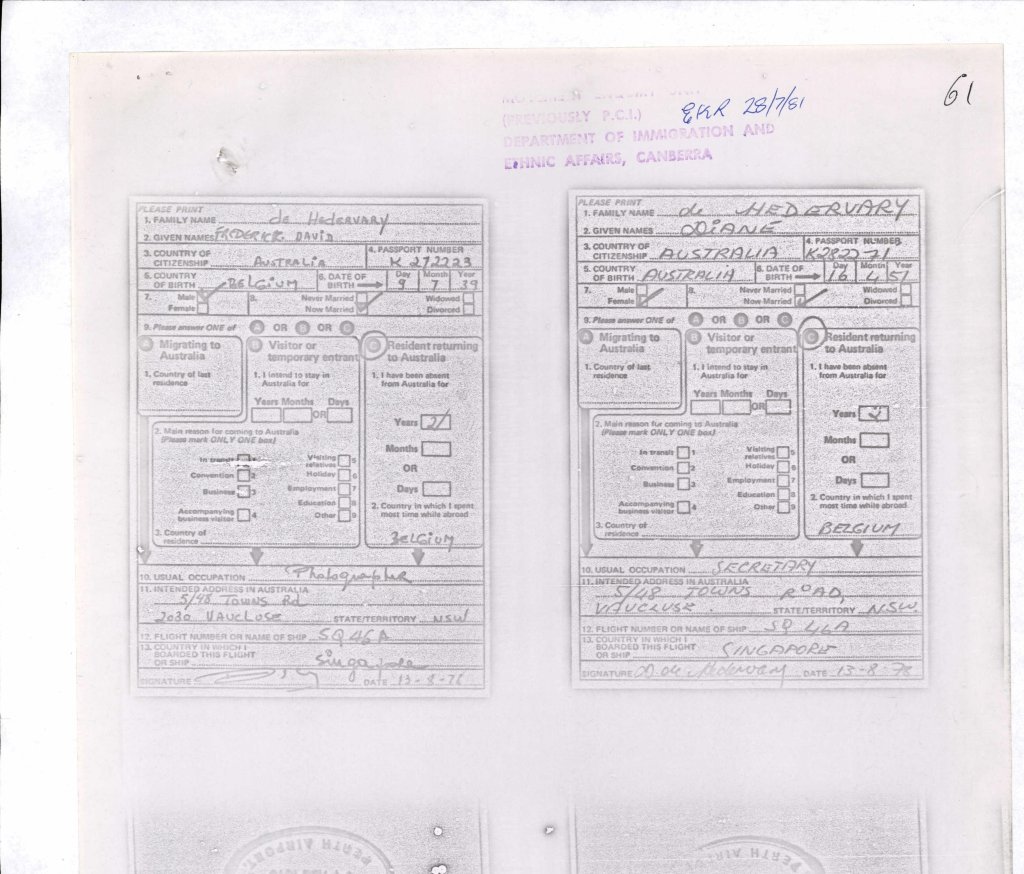 61
EKR 28/7/81
(PREVIOUSLY P.C.I.)
DEPARTMENT OF IMMIGRATION AND
ETHNIC AFFAIRS, CANBERRA
PLEASE PRINT
1. FAMILY NAME de Hedervary
2. GIVEN NAMES FREDERICK DAVID
3. COUNTRY OF CITIZENSHIP AUSTRALIA
4. PASSPORT NUMBER K 272223
5. COUNTRY OF BIRTH BELGIUM
6. DATE OF BIRTH Day 9 Month 7 Year 39
7. Male Female
8. Never Married Now Married Widowed Divorced
9. Please answer ONE of A OR B OR C
A Migrating to Australia
1. Country of last residence
B Visitor or temporary entrant
1. I intend to stay in Australia for
Years Months OR Days
2. Main reason for coming to Australia
(Please mark ONLY ONE box)
In transit 1
Convention 2
Business 3
Accompanying business visitor 4
Visiting relatives 5
Holiday 6
Employment 7
Education 8
Other 9
3. Country of residence
C Resident returning to Australia
1. I have been absent from Australia for
Years 2/
Months
OR
Days
2. Country in which I spent most time while abroad
BELGIUM
10. USUAL OCCUPATION Photographer
11. INTENDED ADDRESS IN AUSTRALIA
5/48 TOWNS Rd
2030 VAUCLUSE STATE/TERRITORY NSW
12. FLIGHT NUMBER OR NAME OF SHIP SQ 46A
13. COUNTRY IN WHICH I BOARDED THIS FLIGHT OR SHIP Singapore
SIGNATURE DATE 13-8-78
PERTH AIRPORT
PLEASE PRINT
1. FAMILY NAME de HEDERVARY
2. GIVEN NAMES DIANE
3. COUNTRY OF CITIZENSHIP AUSTRALIA
4. PASSPORT NUMBER K282271
5. COUNTRY OF BIRTH AUSTRALIA
6. DATE OF BIRTH Day 16 Month 4 Year 51
7. Male Female
8. Never Married Now Married Widowed Divorced
9. Please answer ONE of A OR B OR C
A Migrating to Australia
1. Country of last residence
B Visitor or temporary entrant
1. I intend to stay in Australia for
Years Months OR Days
2. Main reason for coming to Australia
(Please mark ONLY ONE box)
In transit 1
Convention 2
Business 3
Accompanying business visitor 4
Visiting relatives 5
Holiday 6
Employment 7
Education 8
Other 9
3. Country of residence
C Resident returning to Australia
1. I have been absent from Australia for
Years 2
Months
OR
Days
2. Country in which I spent most time while abroad
BELGIUM
10. USUAL OCCUPATION SECRETARY
11. INTENDED ADDRESS IN AUSTRALIA
5/48 TOWNS ROAD,
VAUCLUSE. STATE/TERRITORY NSW
12. FLIGHT NUMBER OR NAME OF SHIP SQ 46A
13. COUNTRY IN WHICH I BOARDED THIS FLIGHT OR SHIP SINGAPORE
SIGNATURE D de Hedervary DATE 13-8-78
PERTH